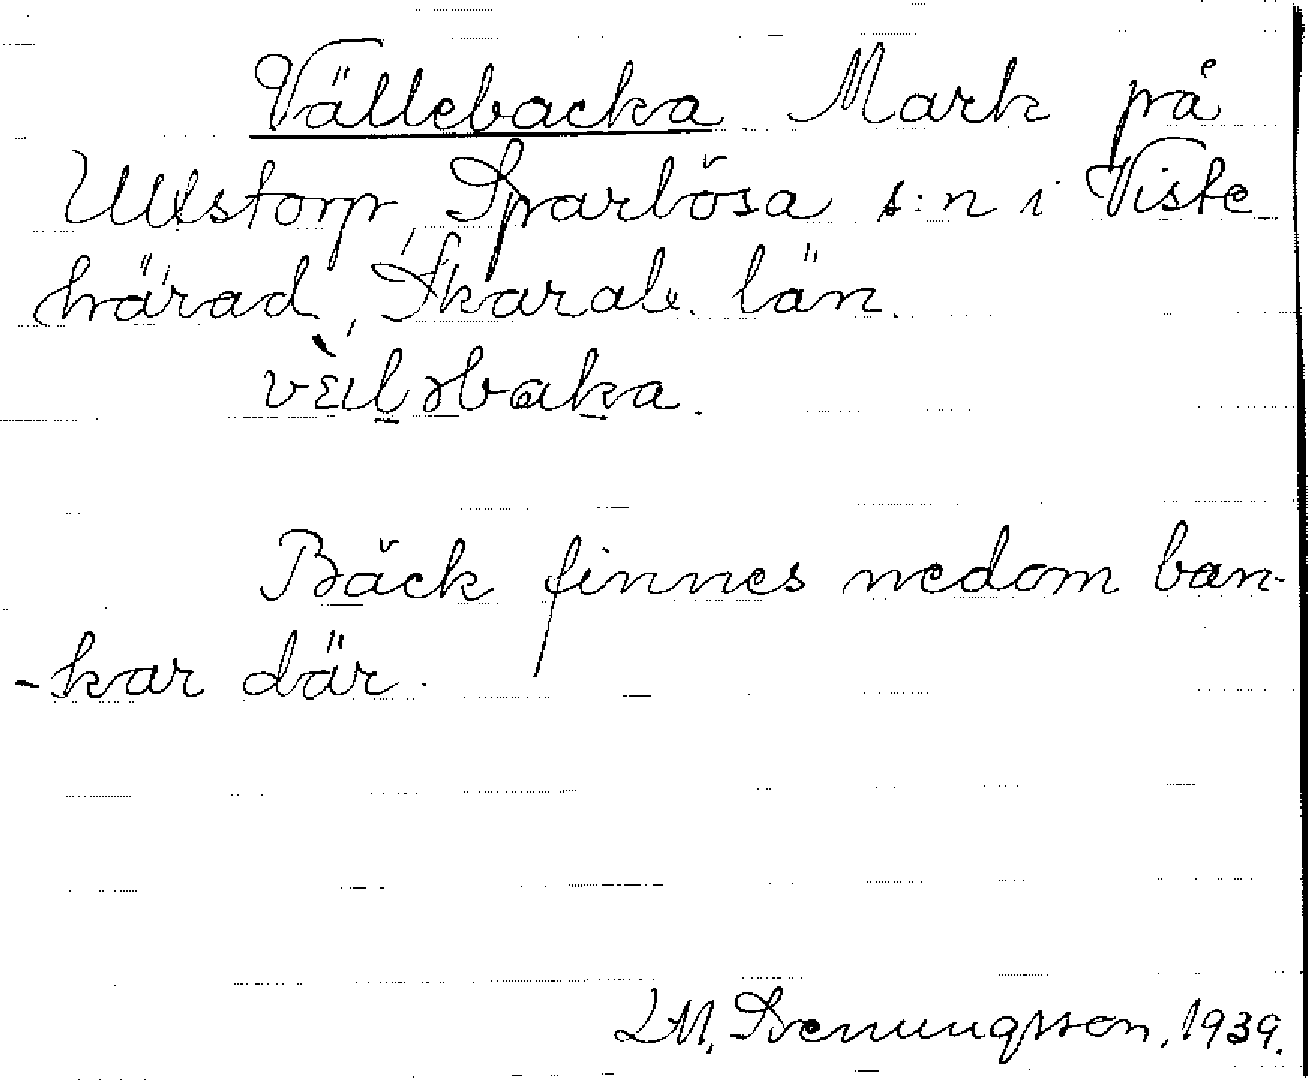 Vällebacka Mark på
Ulvstorp, Sparlösa s:n i Viste
härad, Skarab. län.
Bäck finnes nedom ban-
-kar där.
L.M. Svenungsson, 1939.